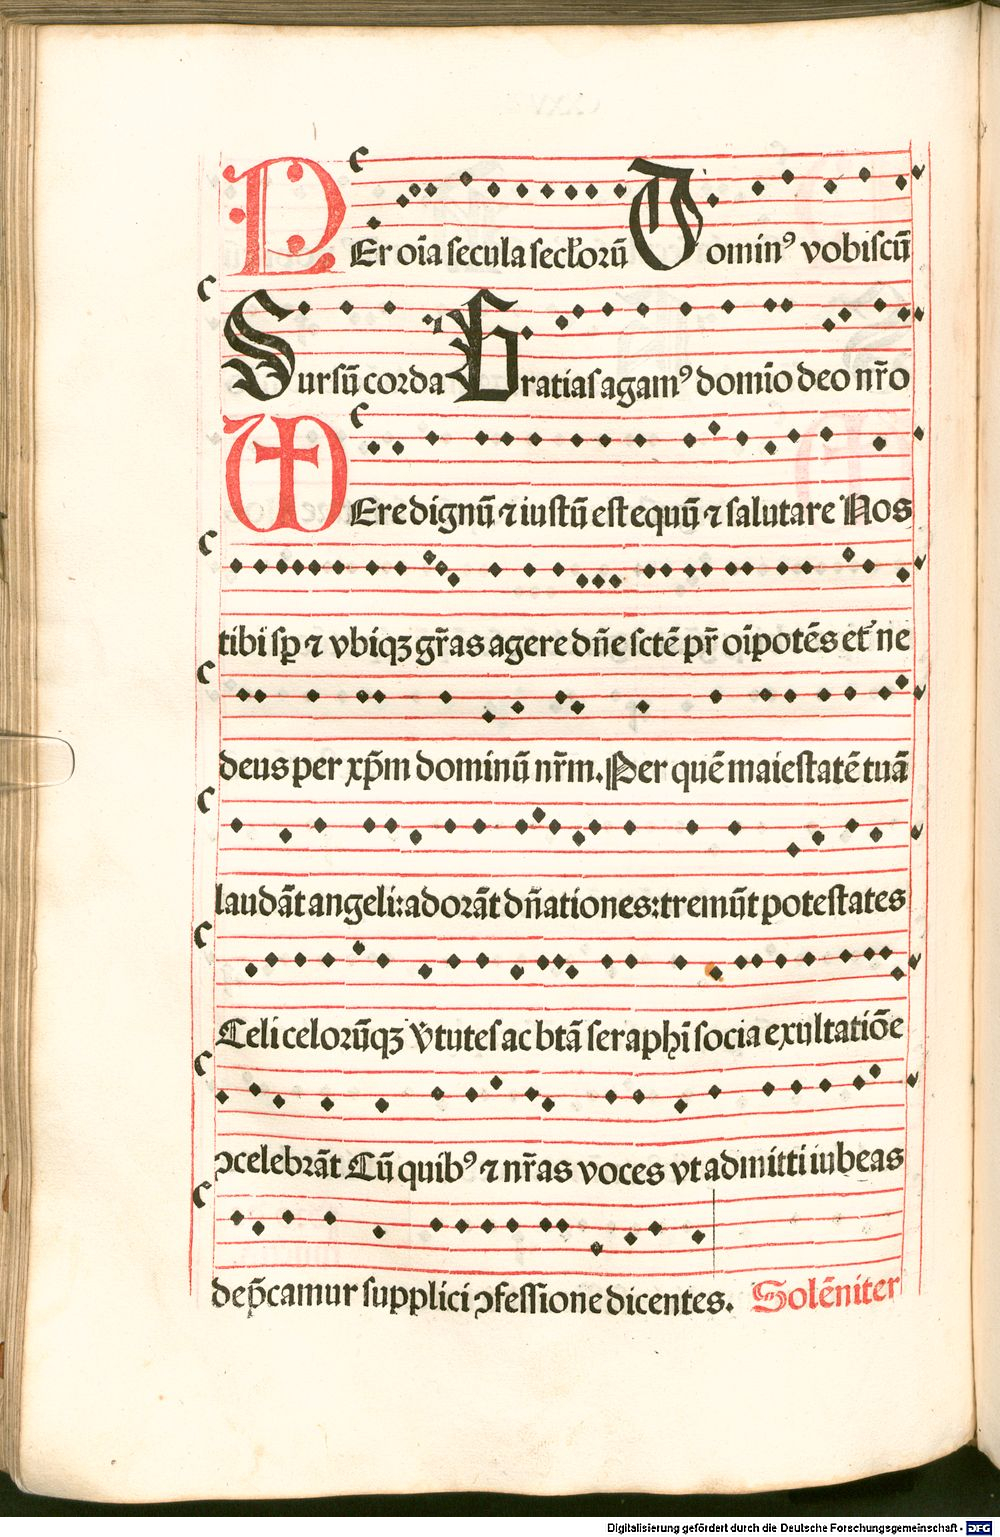 PEr oīa secula seclorū Domin⁹ vobiscū
Sursū corda Gratias agam⁹ domīo deo nr̄o
VEre dignū ⁊ iustū est equū ⁊ salutare Nos
tibi sp ⁊ vbiqꝫ gr̄as agere dn̄e sctē pr̄ oīpotēs et̄ne
deus per xp̄m dominū nr̄m. Per quē maiestatē tuā
laudāt angeli: adorāt dn̄ationes: tremūt potestates
Celi celorūqꝫ v̄tutes ac btā seraphī socia exultatiōe
ↄcelebrāt Cū quib⁹ ⁊ nr̄as voces vt admitti iubeas
dep̄camur supplici ↄfessione dicentes. Solēniter
Digitalisierung gefördert durch die Deutsche Forschungsgemeinschaft - DFG